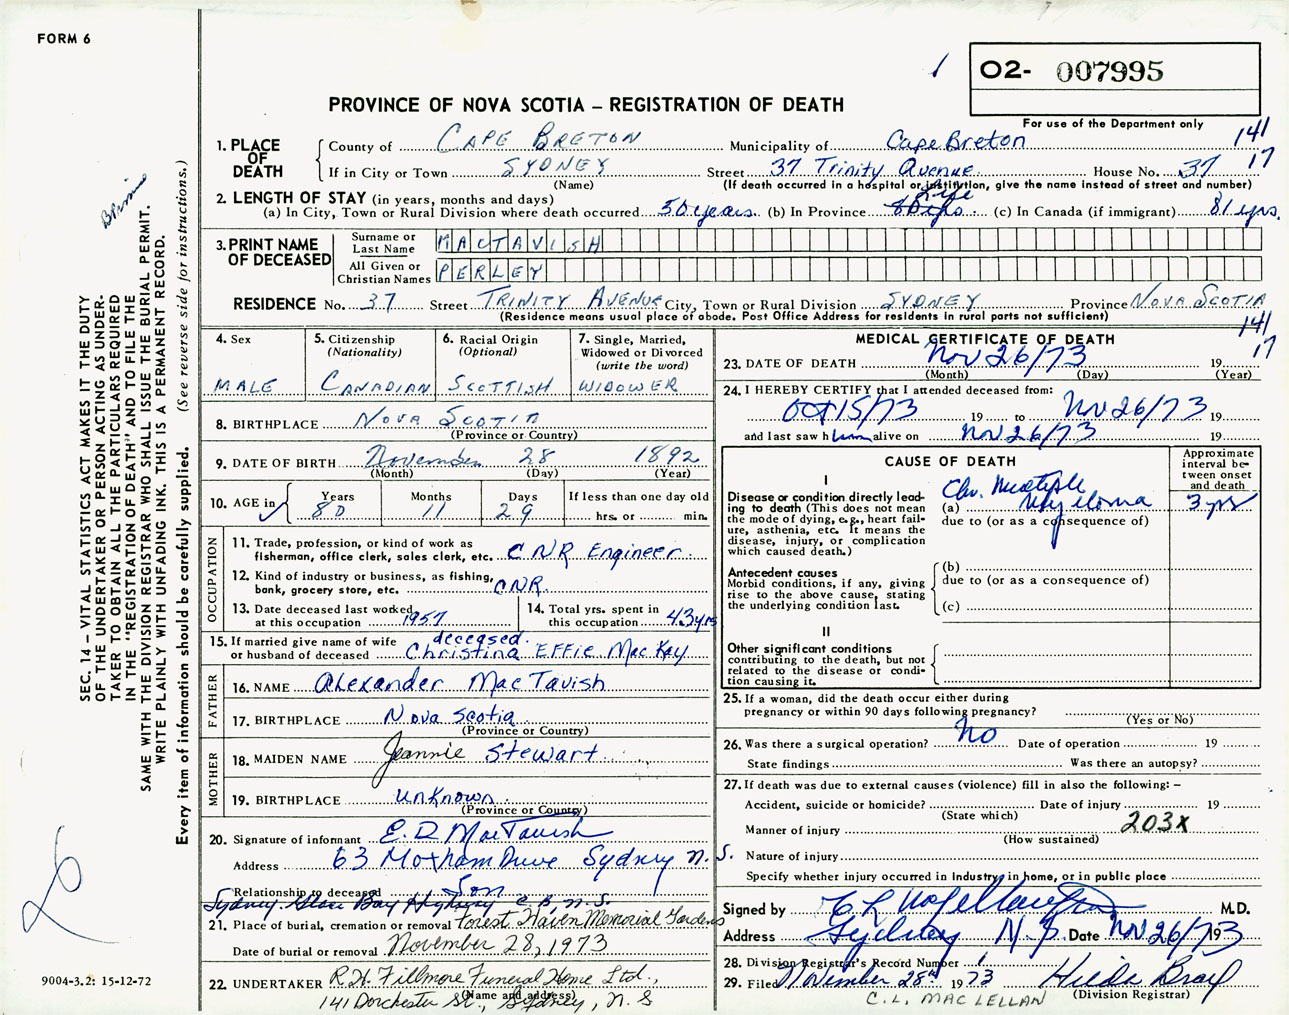 FORM 6
1
O2- 007995
PROVINCE OF NOVA SCOTIA – REGISTRATION OF DEATH
For use of the Department only
141
17
1. PLACE OF DEATH
County of CAPE BRETON Municipality of Cape Breton
If in City or Town SYDNEY Street 37 Trinity Avenue House No. 37
(Name) (If death occurred in a hospital or institution, give the name instead of street and number)
2. LENGTH OF STAY (in years, months and days)
Life
(a) In City, Town or Rural Division where death occurred 50 years. (b) In Province 80 yrs. (c) In Canada (if immigrant) 81 yrs.
3. PRINT NAME OF DECEASED
Surname or Last Name MACTAVISH
All Given or Christian Names PERLEY
RESIDENCE No. 37 Street TRINITY AVENUE City, Town or Rural Division SYDNEY Province NOVA SCOTIA
(Residence means usual place of abode. Post Office Address for residents in rural parts not sufficient)
141
17
4. Sex
MALE
5. Citizenship (Nationality)
CANADIAN
6. Racial Origin (Optional)
SCOTTISH
7. Single, Married, Widowed or Divorced (write the word)
WIDOWER
8. BIRTHPLACE NOVA SCOTIA
(Province or Country)
9. DATE OF BIRTH November 28 1892
(Month) (Day) (Year)
10. AGE in
Years Months Days If less than one day old
80 11 29 hrs. or min.
OCCUPATION
11. Trade, profession, or kind of work as fisherman, office clerk, sales clerk, etc. CNR Engineer
12. Kind of industry or business, as fishing, bank, grocery store, etc. CNR.
13. Date deceased last worked at this occupation 1957
14. Total yrs. spent in this occupation 43 yrs
15. If married give name of wife or husband of deceased deceased. Christina EFFIE MacKay
FATHER
16. NAME Alexander MacTavish
17. BIRTHPLACE Nova Scotia
(Province or Country)
MOTHER
18. MAIDEN NAME Jeannie Stewart
19. BIRTHPLACE unknown
(Province or Country)
20. Signature of informant E. D. MacTavish
Address 63 Moxham Drive Sydney N.S.
Relationship to deceased Son
Sydney Glace Bay Highway C.B., N.S.
21. Place of burial, cremation or removal Forest Haven Memorial Gardens
Date of burial or removal November 28, 1973
22. UNDERTAKER R.H. Fillmore Funeral Home Ltd.,
(Name and address)
141 Dorchester St., Sydney, N.S
MEDICAL CERTIFICATE OF DEATH
23. DATE OF DEATH Nov 26/73 19
(Month) (Day) (Year)
24. I HEREBY CERTIFY that I attended deceased from:
Oct 15/73 19 to Nov 26/73 19
and last saw him alive on Nov 26/73 19
CAUSE OF DEATH
Approximate interval between onset and death
I
Disease or condition directly leading to death (This does not mean the mode of dying, e.g., heart failure, asthenia, etc. It means the disease, injury, or complication which caused death.)
(a) Chr. Multiple Myeloma 3 yrs
due to (or as a consequence of)
Antecedent causes
Morbid conditions, if any, giving rise to the above cause, stating the underlying condition last.
(b)
due to (or as a consequence of)
(c)
II
Other significant conditions contributing to the death, but not related to the disease or condition causing it.
25. If a woman, did the death occur either during pregnancy or within 90 days following pregnancy?
(Yes or No)
26. Was there a surgical operation? No Date of operation 19
State findings Was there an autopsy?
27. If death was due to external causes (violence) fill in also the following: –
Accident, suicide or homicide? Date of injury 19
(State which)
Manner of injury 203X
(How sustained)
Nature of injury
Specify whether injury occurred in Industry, in home, or in public place
Signed by M.D.
Address Sydney N.S. Date Nov 26/73 19
28. Division Registrar's Record Number 1
29. Filed November 28th 1973
(Division Registrar)
C.L. MACLELLAN
SEC. 14 – VITAL STATISTICS ACT MAKES IT THE DUTY
OF THE UNDERTAKER OR PERSON ACTING AS UNDER-
TAKER TO OBTAIN ALL THE PARTICULARS REQUIRED
IN THE "REGISTRATION OF DEATH" AND TO FILE THE
SAME WITH THE DIVISION REGISTRAR WHO SHALL ISSUE THE BURIAL PERMIT.
WRITE PLAINLY WITH UNFADING INK. THIS IS A PERMANENT RECORD.
Every item of information should be carefully supplied. (See reverse side for instructions.)
9004-3.2: 15-12-72